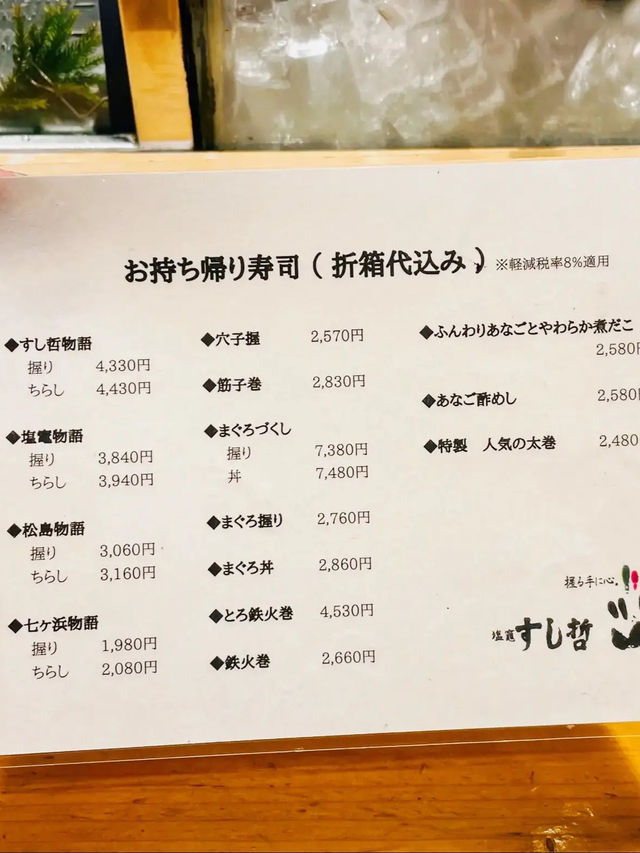 お持ち帰り寿司(折箱代込み) ※軽減税率8%適用
◆すし哲物語
握り 4,330円
ちらし 4,430円
◆塩竈物語
握り 3,840円
ちらし 3,940円
◆松島物語
握り 3,060円
ちらし 3,160円
◆七ヶ浜物語
握り 1,980円
ちらし 2,080円
◆穴子握 2,570円
◆筋子巻 2,830円
◆まぐろづくし
握り 7,380円
丼 7,480円
◆まぐろ握り 2,760円
◆まぐろ丼 2,860円
◆とろ鉄火巻 4,530円
◆鉄火巻 2,660円
◆ふんわりあなごとやわらか煮だこ
2,580円
◆あなご酢めし 2,580
◆特製 人気の太巻 2,480
握る手に心。
塩竈 すし哲